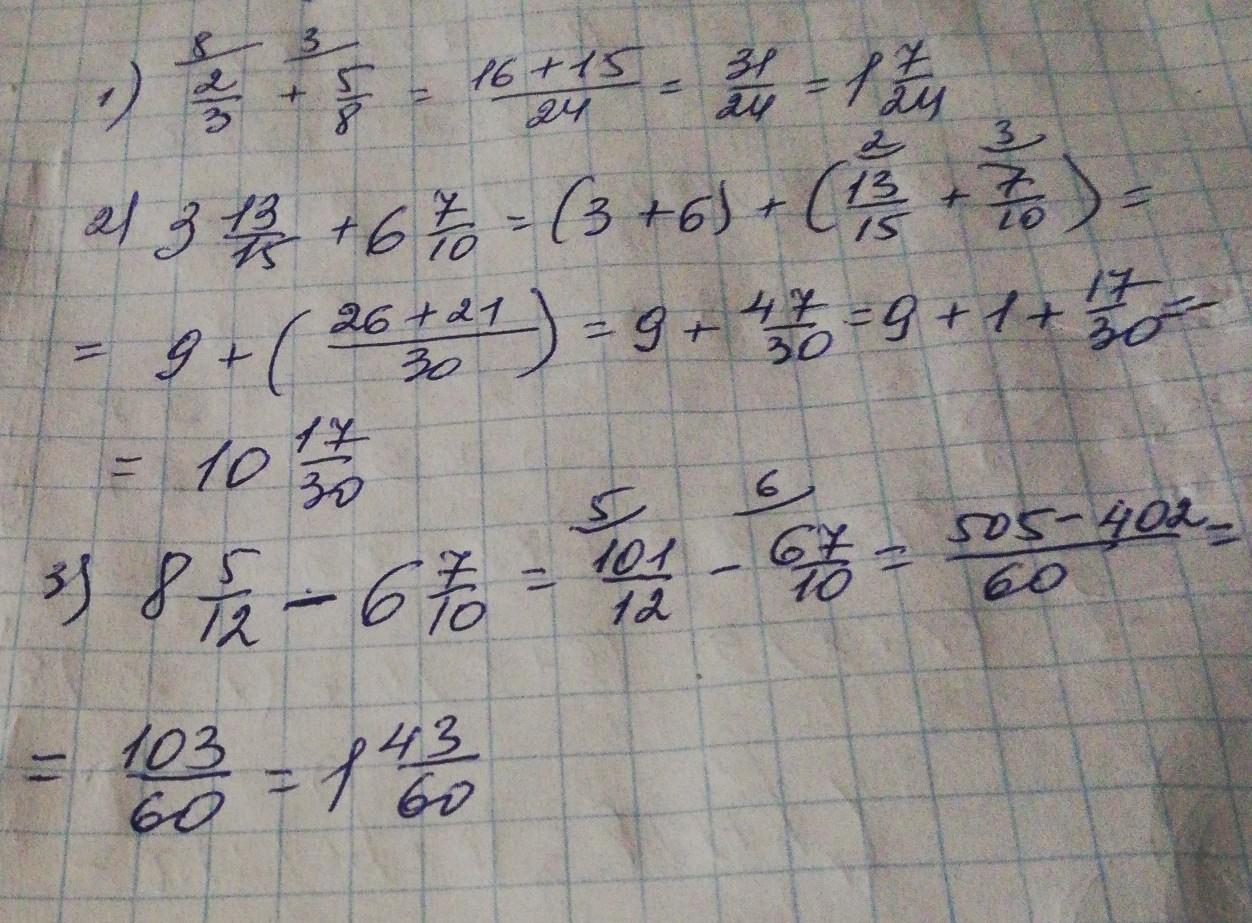 1) ⁸⁄ 2/3 + ³⁄ 5/8 = (16+15)/24 = 31/24 = 1 7/24
2) 3 13/15 + 6 7/10 = (3+6) + (²⁄ 13/15 + ³⁄ 7/10) =
= 9 + ((26+21)/30) = 9 + 47/30 = 9 + 1 + 17/30 =
= 10 17/30
3) 8 5/12 - 6 7/10 = ⁵⁄ 101/12 - ⁶⁄ 67/10 = (505-402)/60 =
= 103/60 = 1 43/60